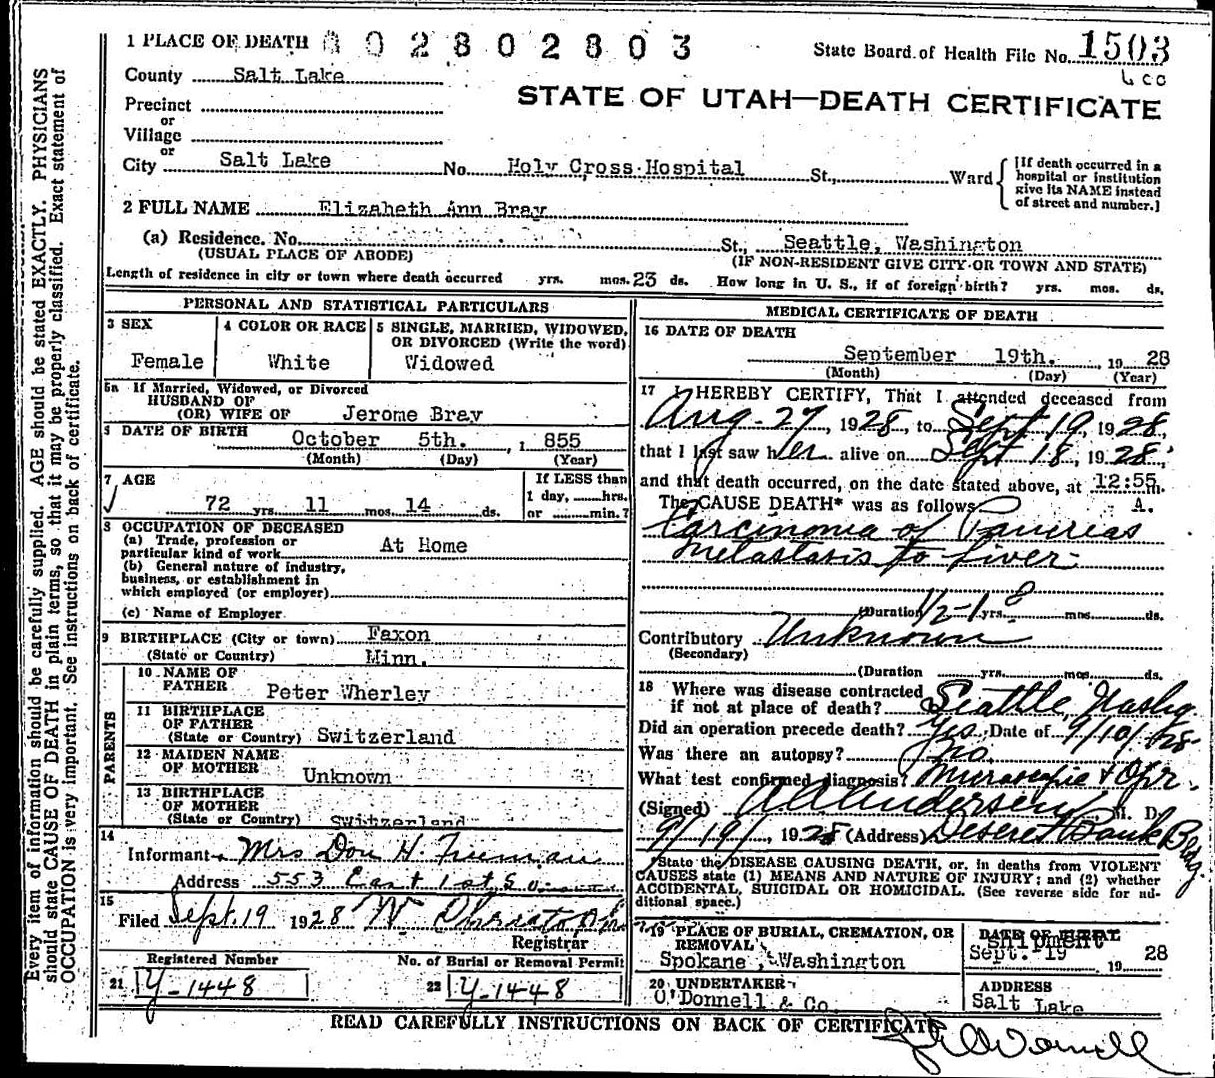 1 PLACE OF DEATH 302802803 State Board of Health File No. 1503
County Salt Lake
STATE OF UTAH—DEATH CERTIFICATE
Precinct
or
Village
or
City Salt Lake No. Holy Cross Hospital St., Ward
[If death occurred in a
hospital or institution
give its NAME instead
of street and number.]
2 FULL NAME Elizabeth Ann Bray
(a) Residence. No. St., Seattle, Washington
(USUAL PLACE OF ABODE) (IF NON-RESIDENT GIVE CITY OR TOWN AND STATE)
Length of residence in city or town where death occurred yrs. mos. 23 ds. How long in U. S., if of foreign birth? yrs. mos. ds.
PERSONAL AND STATISTICAL PARTICULARS
3 SEX
Female
4 COLOR OR RACE
White
5 SINGLE, MARRIED, WIDOWED,
OR DIVORCED (Write the word)
Widowed
5a If Married, Widowed, or Divorced
HUSBAND OF
(OR) WIFE OF Jerome Bray
6 DATE OF BIRTH October 5th. , 1 855
(Month) (Day) (Year)
7 AGE
72 yrs. 11 mos. 14 ds.
If LESS than
1 day, hrs.
or min.?
8 OCCUPATION OF DECEASED
(a) Trade, profession or
particular kind of work At Home
(b) General nature of industry,
business, or establishment in
which employed (or employer)
(c) Name of Employer
9 BIRTHPLACE (City or town) Faxon
(State or Country) Minn.
PARENTS
10 NAME OF
FATHER Peter Wherley
11 BIRTHPLACE
OF FATHER
(State or Country) Switzerland
12 MAIDEN NAME
OF MOTHER Unknown
13 BIRTHPLACE
OF MOTHER
(State or Country) Switzerland
14
Informant Mrs Don H.
Address 553 East 1st S
15
Filed Sept. 19 1928
Registrar
Registered Number
21 Y-1448
No. of Burial or Removal Permit
22 Y-1448
MEDICAL CERTIFICATE OF DEATH
16 DATE OF DEATH
September 19th. , 19 28
(Month) (Day) (Year)
17 I HEREBY CERTIFY, That I attended deceased from
Aug - 27, 1928, to Sept 19, 1928,
that I last saw her alive on Sept 18, 1928,
and that death occurred, on the date stated above, at 12:55 m.
The CAUSE DEATH* was as follows A.
Carcinoma of Pancreas
metastasis to Liver
(Duration 1/2-1 yrs. ? mos. ds.
Contributory Unknown
(Secondary)
(Duration yrs. mos. ds.
18 Where was disease contracted
if not at place of death? Seattle, Washg.
Did an operation precede death? Yes Date of 9/10/28
Was there an autopsy? No.
What test confirmed diagnosis? Microscopic & Opr.
(Signed) A A Anderson M. D.
9/19/, 1928 (Address) Deseret Bank Bldg.
*State the DISEASE CAUSING DEATH, or, in deaths from VIOLENT
CAUSES state (1) MEANS AND NATURE OF INJURY; and (2) whether
ACCIDENTAL, SUICIDAL OR HOMICIDAL. (See reverse side for ad-
ditional space.)
19 PLACE OF BURIAL, CREMATION, OR
REMOVAL
Spokane, Washington
DATE OF BURIAL
shipment
Sept. 19 19 28
20 UNDERTAKER
O'Donnell & Co.
ADDRESS
Salt Lake
READ CAREFULLY INSTRUCTIONS ON BACK OF CERTIFICATE
Every item of information should be carefully supplied. AGE should be stated EXACTLY. PHYSICIANS
should state CAUSE OF DEATH in plain terms, so that it may be properly classified. Exact statement of
OCCUPATION is very important. See instructions on back of certificate.